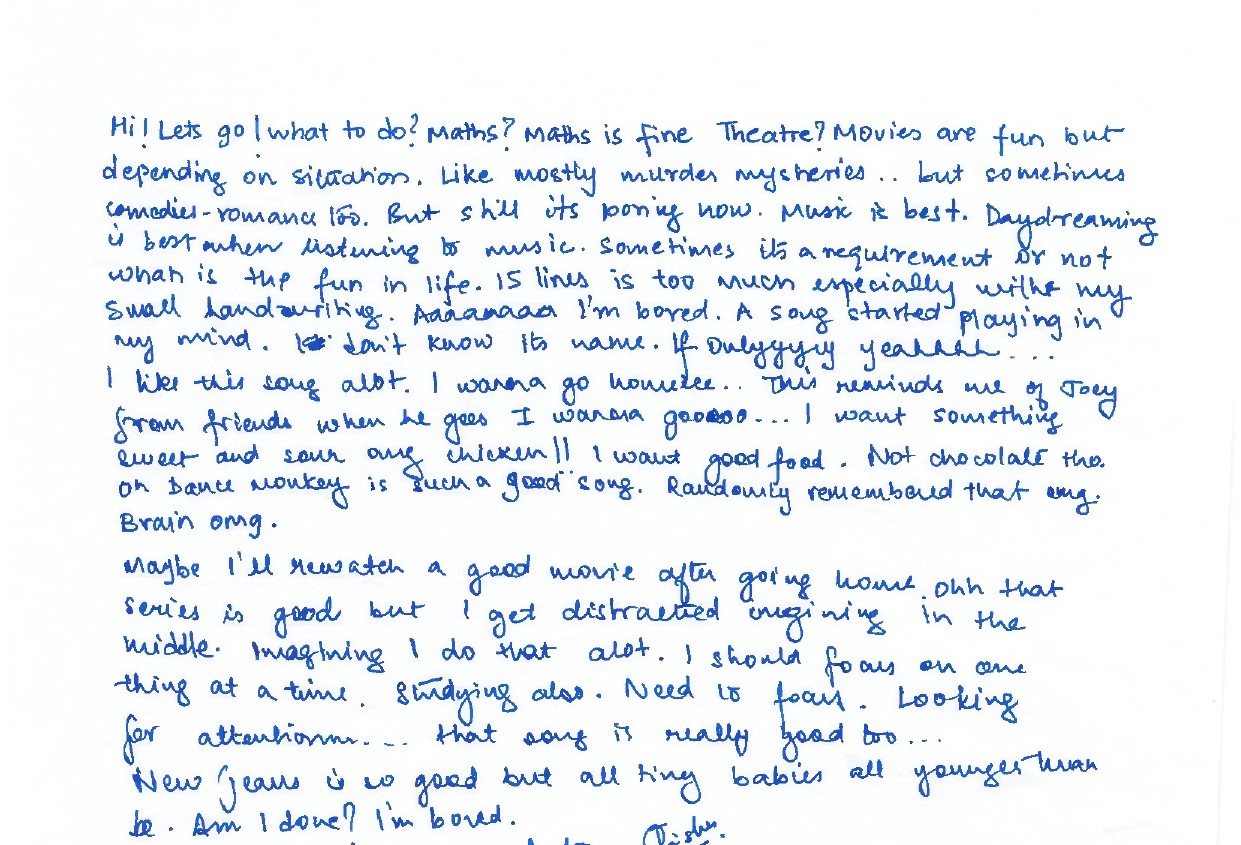 Hi! Lets go! what to do? Maths? Maths is fine Theatre? Movies are fun but
depending on situation. Like mostly murder mysteries .. but sometimes
comedies-romance too. But still its boring now. Music is best. Daydreaming
is best when listening to music. Sometimes its a requirement or not
whan is the fun in life. 15 lines is too much especially withe my
small handwriting. Aaaaaaaa I'm bored. A song started playing in
my mind. I don't know its name. If Onlyyyyy yeahhhh....
I like this song alot. I wanna go homeee.. This reminds me of Joey
from friends when he goes I wanna gooooo... I want something
sweet and sour omg chicken!! I want good food. Not chocolate tho.
oh Dance Monkey is such a good song. Randomly remembered that omg.
Brain omg.
Maybe I'll rewatch a good movie after going home. ohh that
series is good but I get distracted imagining in the
middle. Imagining I do that alot. I should focus on one
thing at a time. Studying also. Need to focus. Looking
for attentionnn.... that song is really good too...
New Jeans is so good but all tiny babies all younger than
be. Am I done? I'm bored.